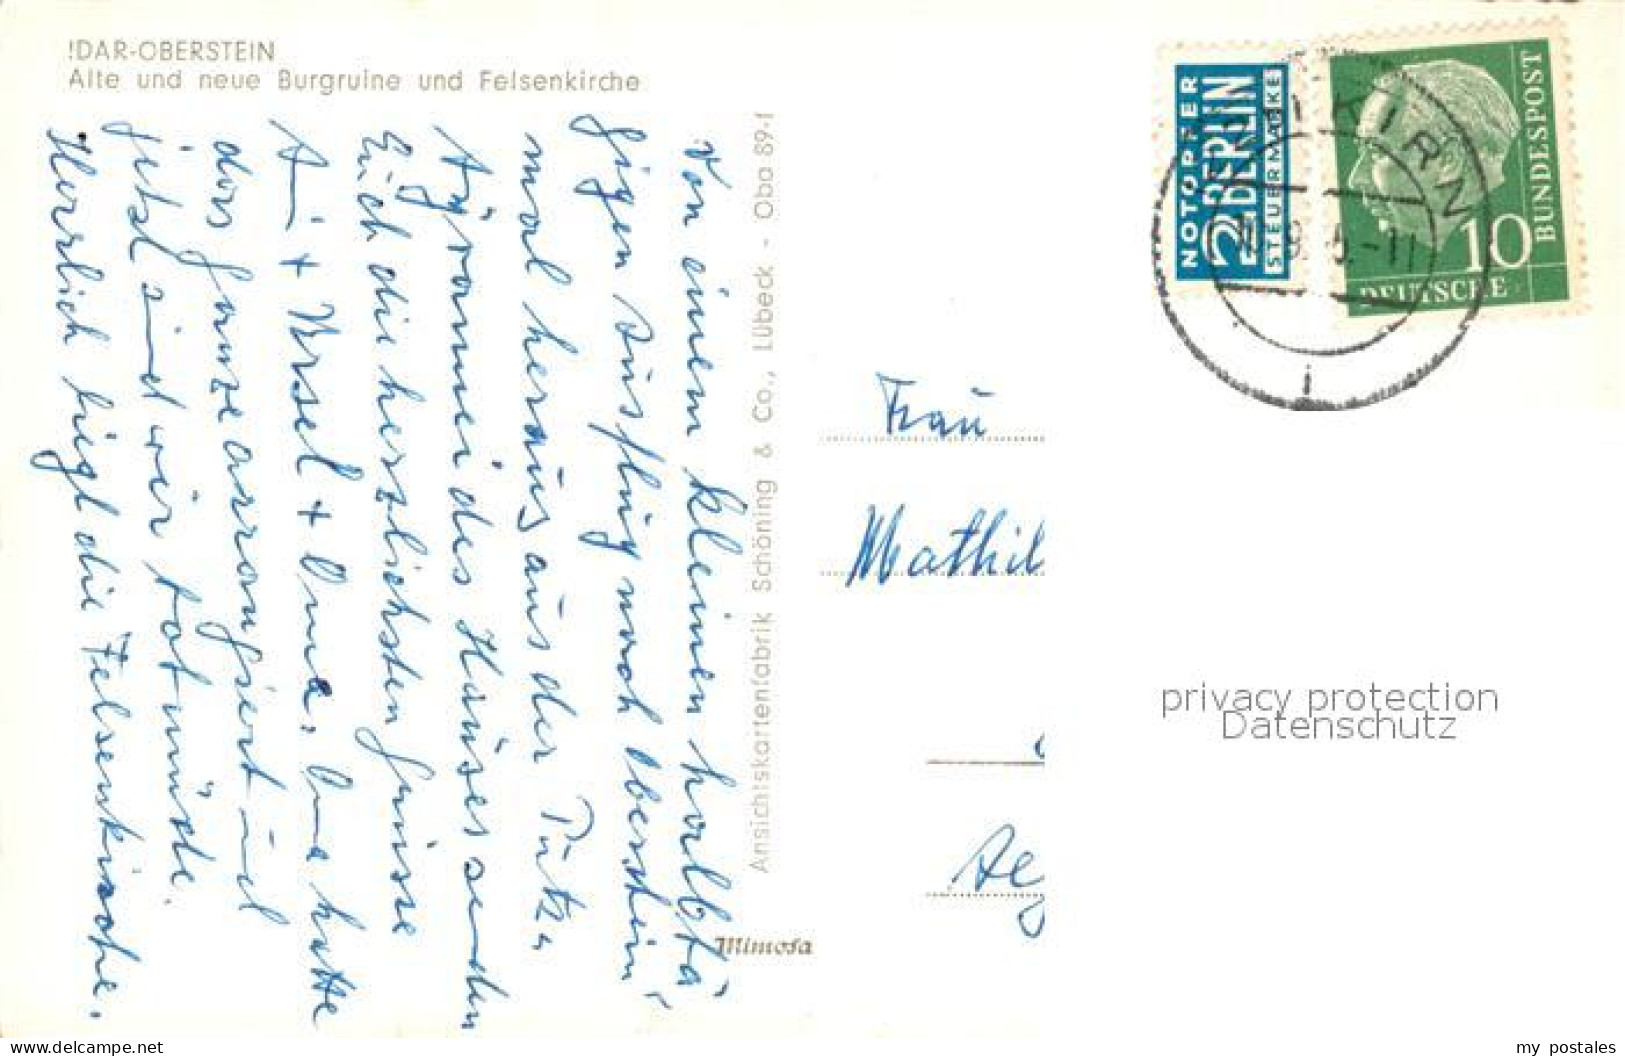 IDAR-OBERSTEIN
Alte und neue Burgruine und Felsenkirche
Von einem kleinen halbtä-
gigen Ausflug nach Oberstein
mal heraus aus der Putz u
Tyrannei des Hauses senden
Euch die herzlichsten Grüsse
A + Ursel + Oma. Oma hatte
das ganze arrangiert und
jetzt sind wir totmüde.
Herrlich liegt die Felsenkirche.
Ansichtskartenfabrik Schöning & Co., Lübeck - Oba 89-1
Mimosa
NOTOPFER
2 BERLIN
STEUERMARKE
KIRN
10
DEUTSCHE
BUNDESPOST
Frau
Mathil
privacy protection
Datenschutz
www.delcampe.net
my_postales